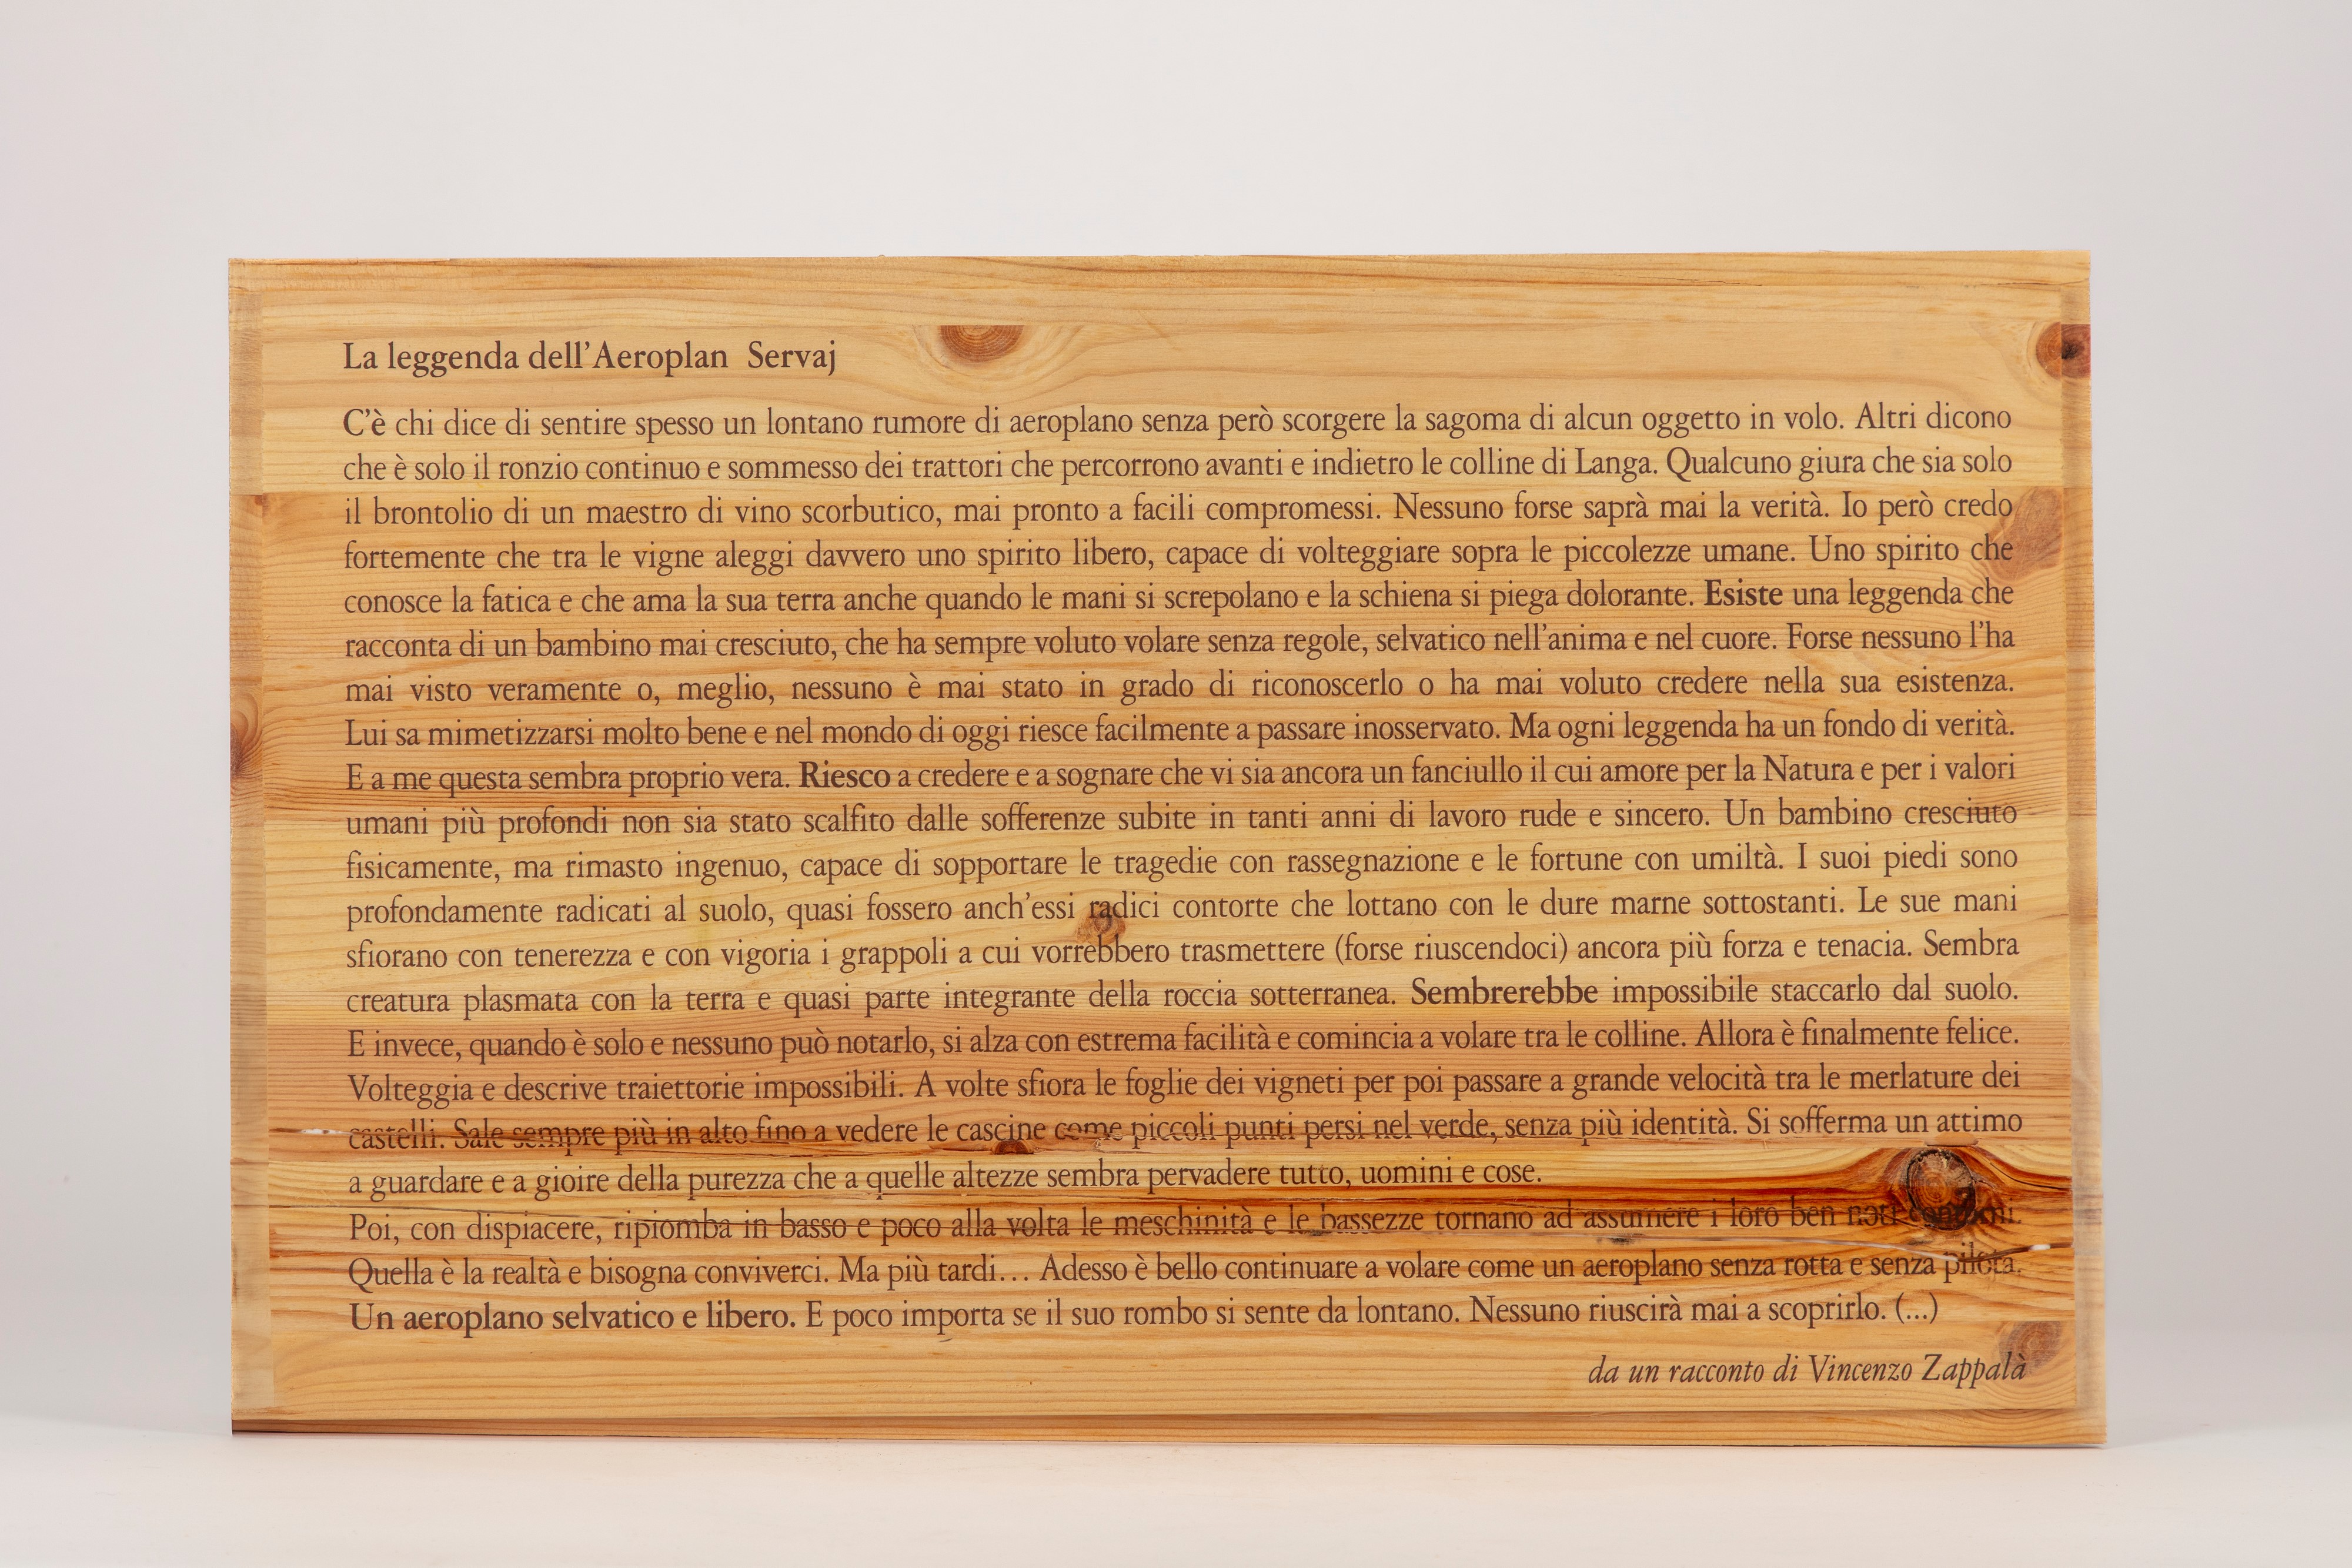 La leggenda dell'Aeroplan Servaj
C'è chi dice di sentire spesso un lontano rumore di aeroplano senza però scorgere la sagoma di alcun oggetto in volo. Altri dicono
che è solo il ronzio continuo e sommesso dei trattori che percorrono avanti e indietro le colline di Langa. Qualcuno giura che sia solo
il brontolio di un maestro di vino scorbutico, mai pronto a facili compromessi. Nessuno forse saprà mai la verità. Io però credo
fortemente che tra le vigne aleggi davvero uno spirito libero, capace di volteggiare sopra le piccolezze umane. Uno spirito che
conosce la fatica e che ama la sua terra anche quando le mani si screpolano e la schiena si piega dolorante. Esiste una leggenda che
racconta di un bambino mai cresciuto, che ha sempre voluto volare senza regole, selvatico nell'anima e nel cuore. Forse nessuno l'ha
mai visto veramente o, meglio, nessuno è mai stato in grado di riconoscerlo o ha mai voluto credere nella sua esistenza.
Lui sa mimetizzarsi molto bene e nel mondo di oggi riesce facilmente a passare inosservato. Ma ogni leggenda ha un fondo di verità.
E a me questa sembra proprio vera. Riesco a credere e a sognare che vi sia ancora un fanciullo il cui amore per la Natura e per i valori
umani più profondi non sia stato scalfito dalle sofferenze subite in tanti anni di lavoro rude e sincero. Un bambino cresciuto
fisicamente, ma rimasto ingenuo, capace di sopportare le tragedie con rassegnazione e le fortune con umiltà. I suoi piedi sono
profondamente radicati al suolo, quasi fossero anch'essi radici contorte che lottano con le dure marne sottostanti. Le sue mani
sfiorano con tenerezza e con vigoria i grappoli a cui vorrebbero trasmettere (forse riuscendoci) ancora più forza e tenacia. Sembra
creatura plasmata con la terra e quasi parte integrante della roccia sotterranea. Sembrerebbe impossibile staccarlo dal suolo.
E invece, quando è solo e nessuno può notarlo, si alza con estrema facilità e comincia a volare tra le colline. Allora è finalmente felice.
Volteggia e descrive traiettorie impossibili. A volte sfiora le foglie dei vigneti per poi passare a grande velocità tra le merlature dei
castelli. Sale sempre più in alto fino a vedere le cascine come piccoli punti persi nel verde, senza più identità. Si sofferma un attimo
a guardare e a gioire della purezza che a quelle altezze sembra pervadere tutto, uomini e cose.
Poi, con dispiacere, ripiomba in basso e poco alla volta le meschinità e le bassezze tornano ad assumere i loro ben noti contorni.
Quella è la realtà e bisogna conviverci. Ma più tardi… Adesso è bello continuare a volare come un aeroplano senza rotta e senza pilota.
Un aeroplano selvatico e libero. E poco importa se il suo rombo si sente da lontano. Nessuno riuscirà mai a scoprirlo. (...)
da un racconto di Vincenzo Zappalà